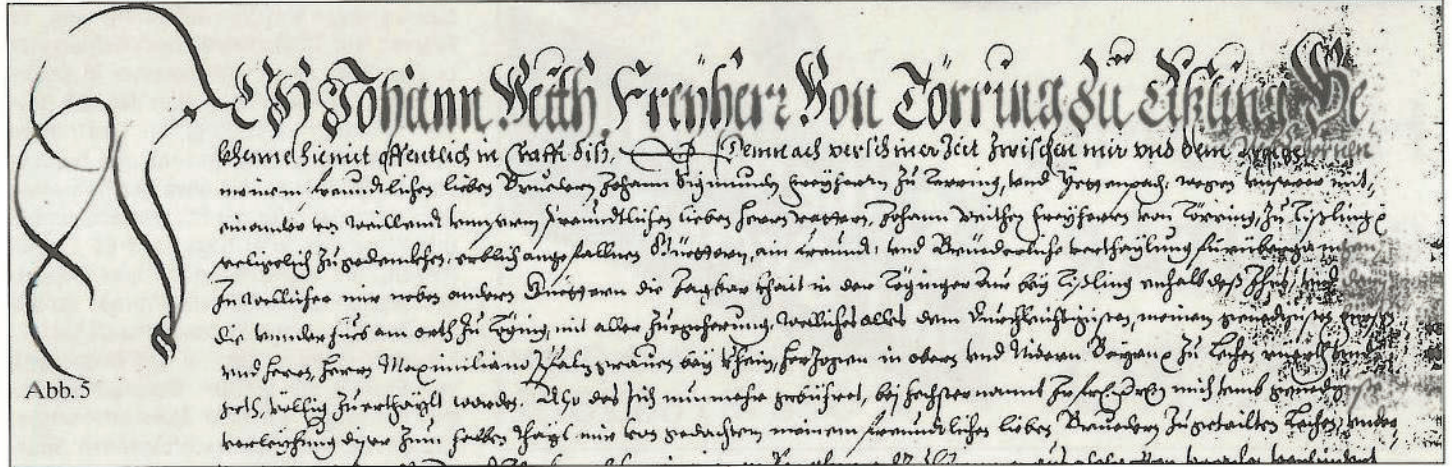 ICH Johann Veith, Freyherr Von Törring Zu Tißling Be
khenne hiemit offentlich in Crafft diß, Demnach verschiner Zeit Zwischen mir vnd dem
meinem freundtlichen lieben Bruedern Johann Sigmundt Freyherrn Zu Törring, vnd Yettenpach, wegen vnserer mit,
einander von Weillendt vnnserm freundtlichen lieben Herrn Vattern, Johann Veithen Freyherrn von Törring, Zu Tißling
seligelich Zugedenckhen, erblich angefallnen Güettern, ain freundt: vnd Brüederliche verthaylung fürübergangen
In wellicher mir neben andern Güettern die Jagbarkhait in der Töginger Aur bey Tißling enhalb deß Yhns, vnd
die vnnder Fuer am orth Zu Töging, mit aller Zuegehörung, welliches alles dem Durchleichtigisten, meinem genedigisten
vnd Herrn, Herrn Maximiliano Pfaltzgrauen bey Rhein, Herzogen in obern vnd Nidern Bayrn Zu Lehen
völlig Zuerthaylt worden. Also das sich nunmehr gebühret, bey hechsternannt Ir mich vmb genedig
verleichung diser Zum halben Thayl mir von gedachtem meinem freundtlichen lieben Bruedern Zugetailten Lehen,
Abb. 5